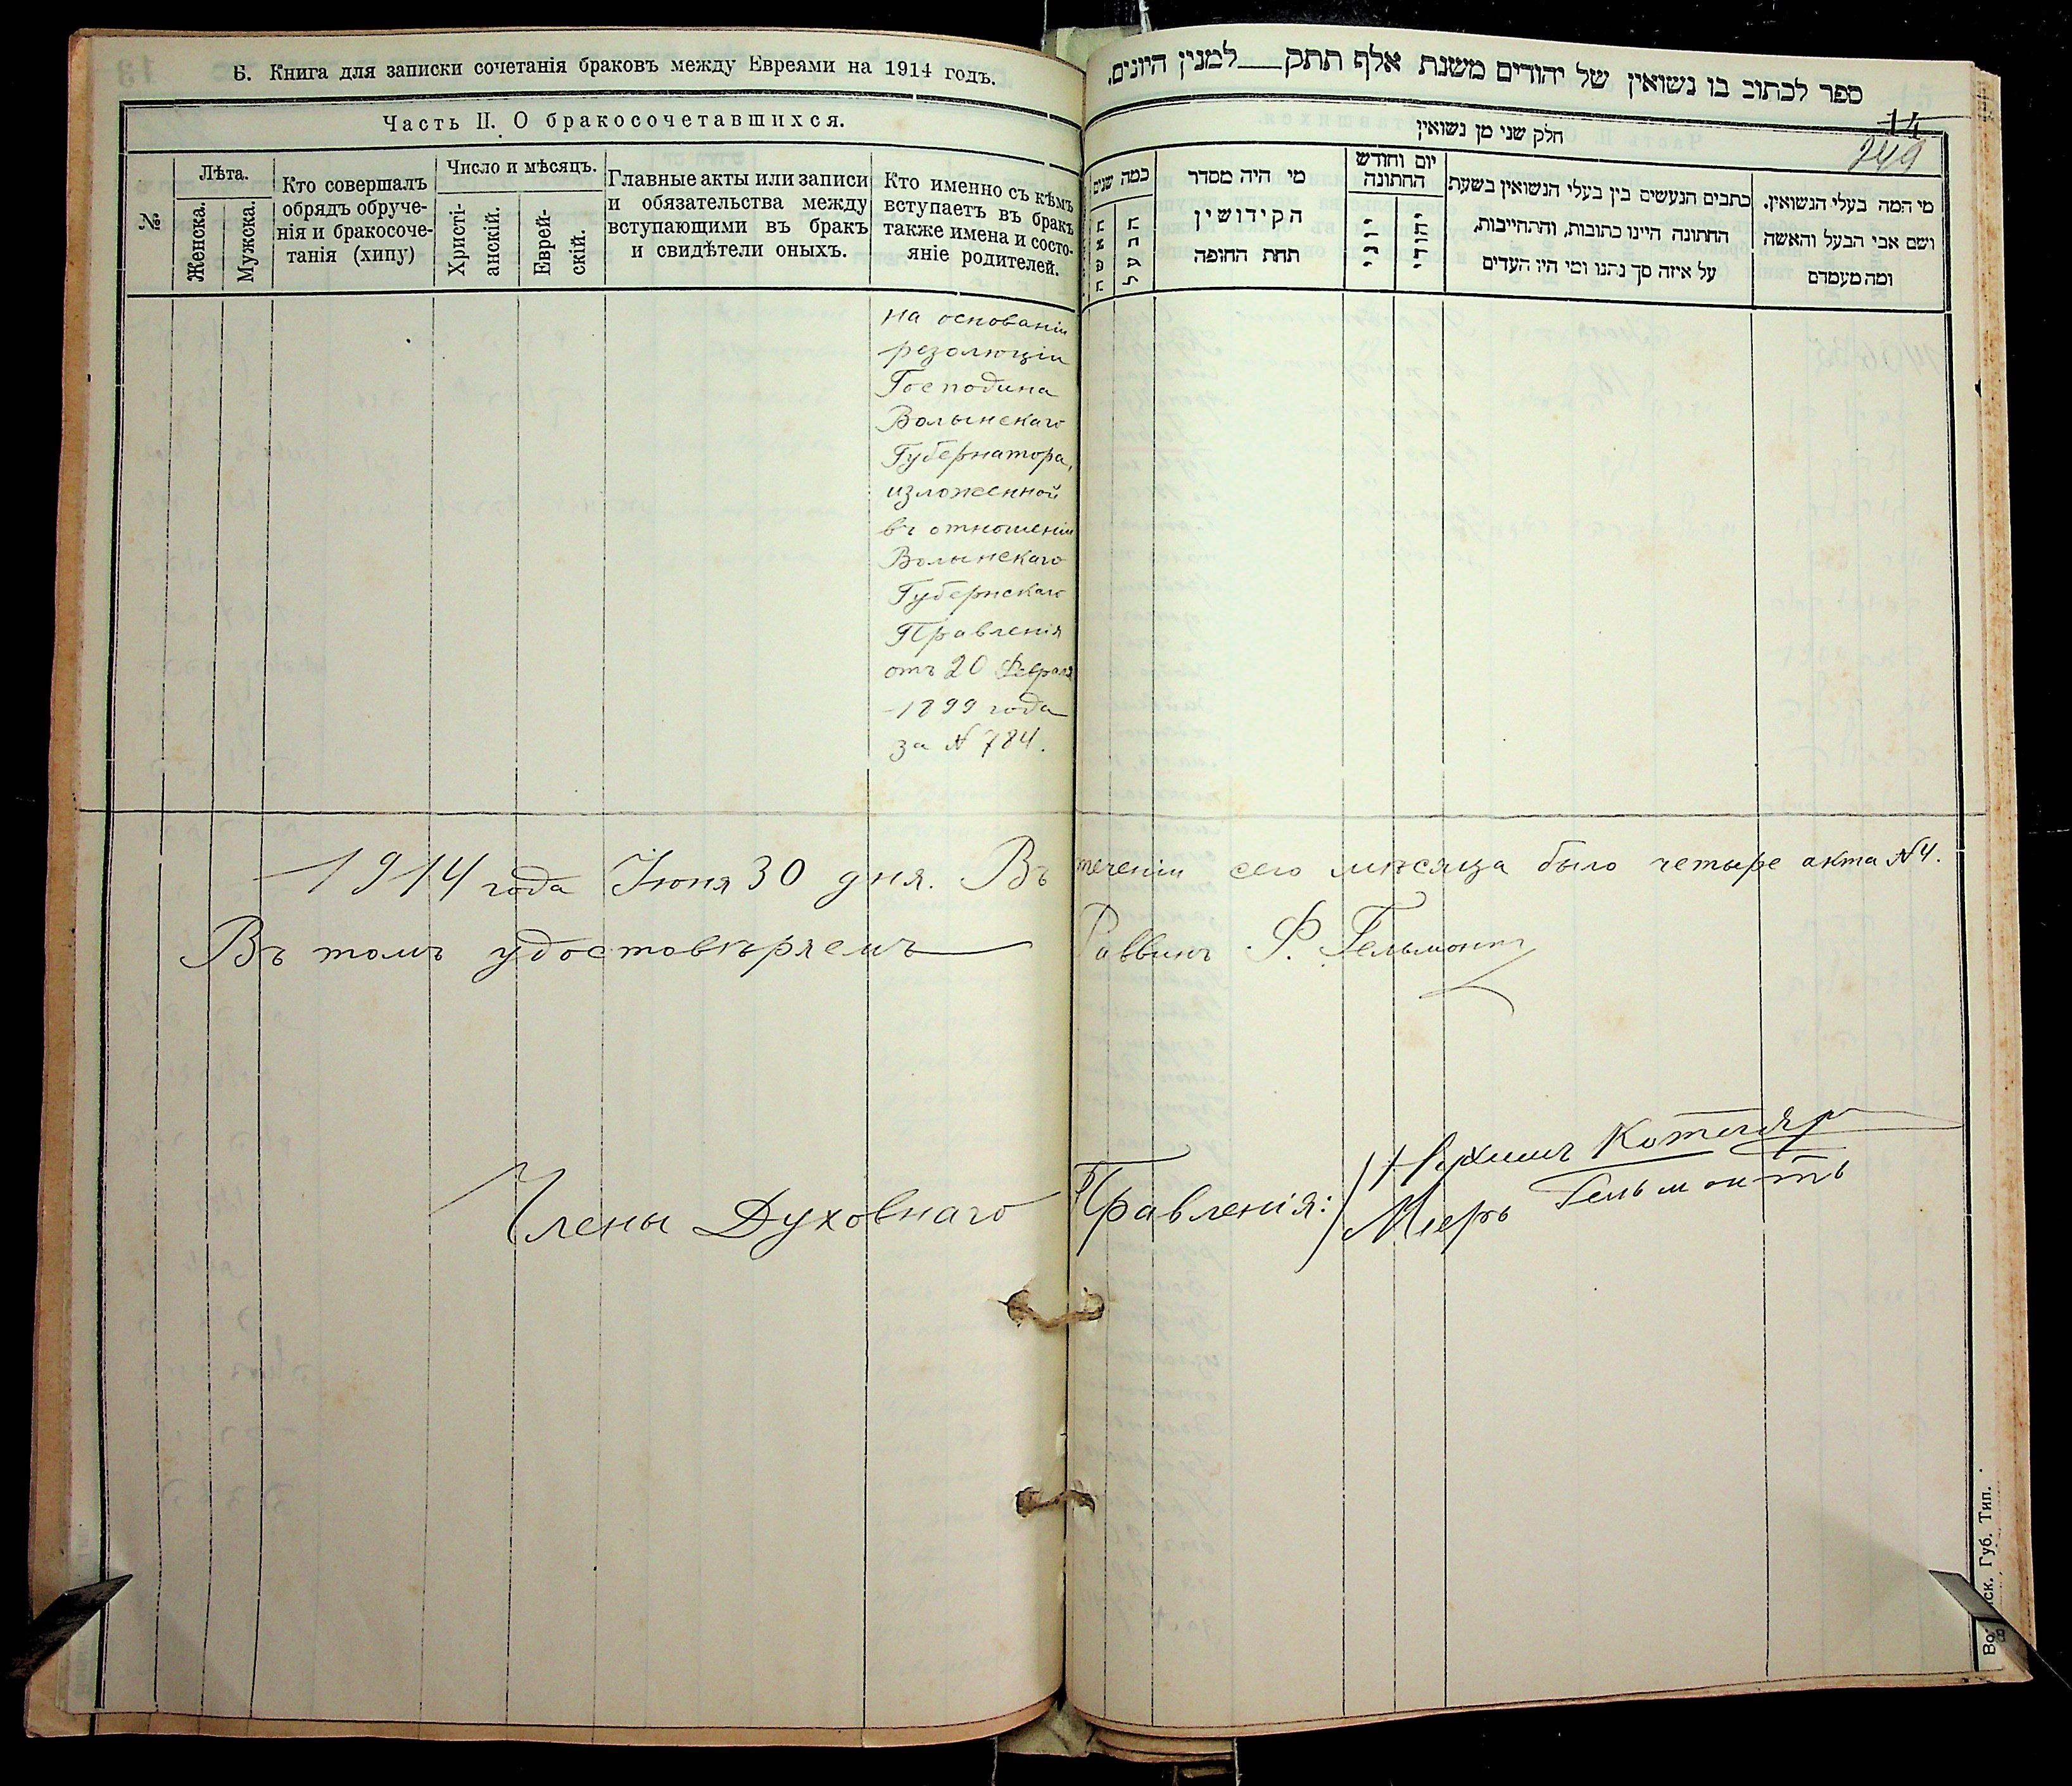 Б. Книга для записки сочетанія браковъ между Евреями на 1914 годъ.
Часть II. О бракосочетавшихся.
№
Лѣта.
Женска.
Мужска.
Кто совершалъ
обрядъ обруче-
нія и бракосоче-
танія (хипу)
Число и мѣсяцъ.
Христі-
анскій.
Еврей-
скій.
Главные акты или записи
и обязательства между
вступающими въ бракъ
и свидѣтели оныхъ.
Кто именно съ кѣмъ
вступаетъ въ бракъ
также имена и состо-
яніе родителей.
на основаніи
резолюціи
Господина
Волынскаго
Губернатора,
изложенной
въ отношеніи
Волынскаго
Губернскаго
Правленія
отъ 20 Февраля
1899 года
за № 784.
ספר לכתוב בו נשואין של יהודים משנת אלף תתק למנין היונים.
14
249
חלק שני מן נשואין
מי המה בעלי הנשואין.
ושם אבי הבעל והאשה
ומה מעמדם
כתבים הנעשים בין בעלי הנשואין בשעת
החתונה היינו כתובות, והתחייבות,
על איזה סך נתנו ומי היו העדים
יום וחודש
החתונה
מי היה מסדר
הקידושין
תחת החופה
כמה שנים
הבעל
האשה
1914 года Іюня 30 дня. Въ теченіи сего мѣсяца было четыре акта № 4.
Въ томъ удостовѣряемъ Раввинъ Ф. Гельмонтъ
Члены Духовнаго Правленія:
Нухимъ Котляр
Меръ Гельмонтъ
Губ. Тип.